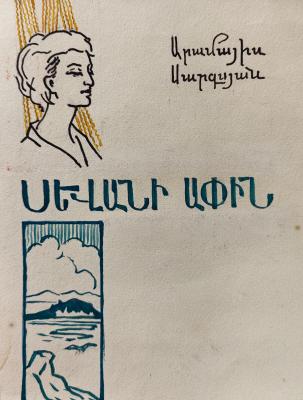 Արամայիս
Սարգսյան
ՍԵՎԱՆԻ ԱՓԻՆ